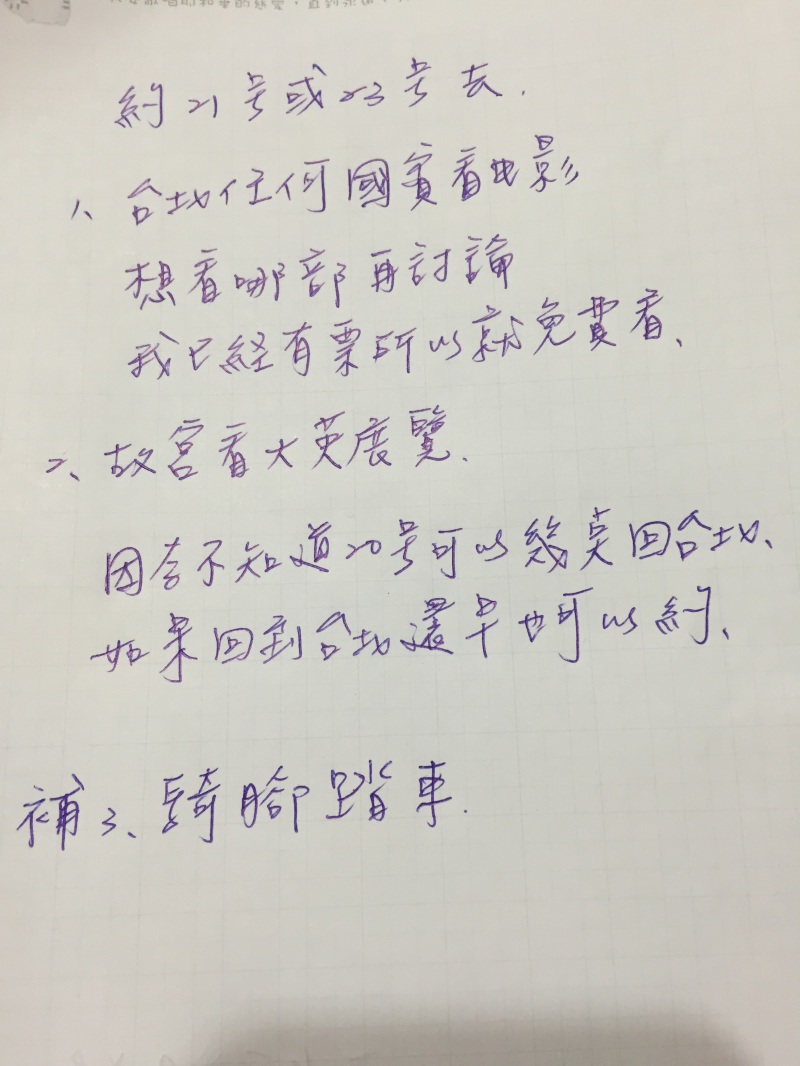 約21号或23号去.
1、台北任何國賓看电影
想看哪部再討論
我已経有票所以就免費看、
2、故宮看大英展覽.
因為不知道20号可以幾点回台北、
如果回到台北還早也可以約、
補3、騎腳踏車.